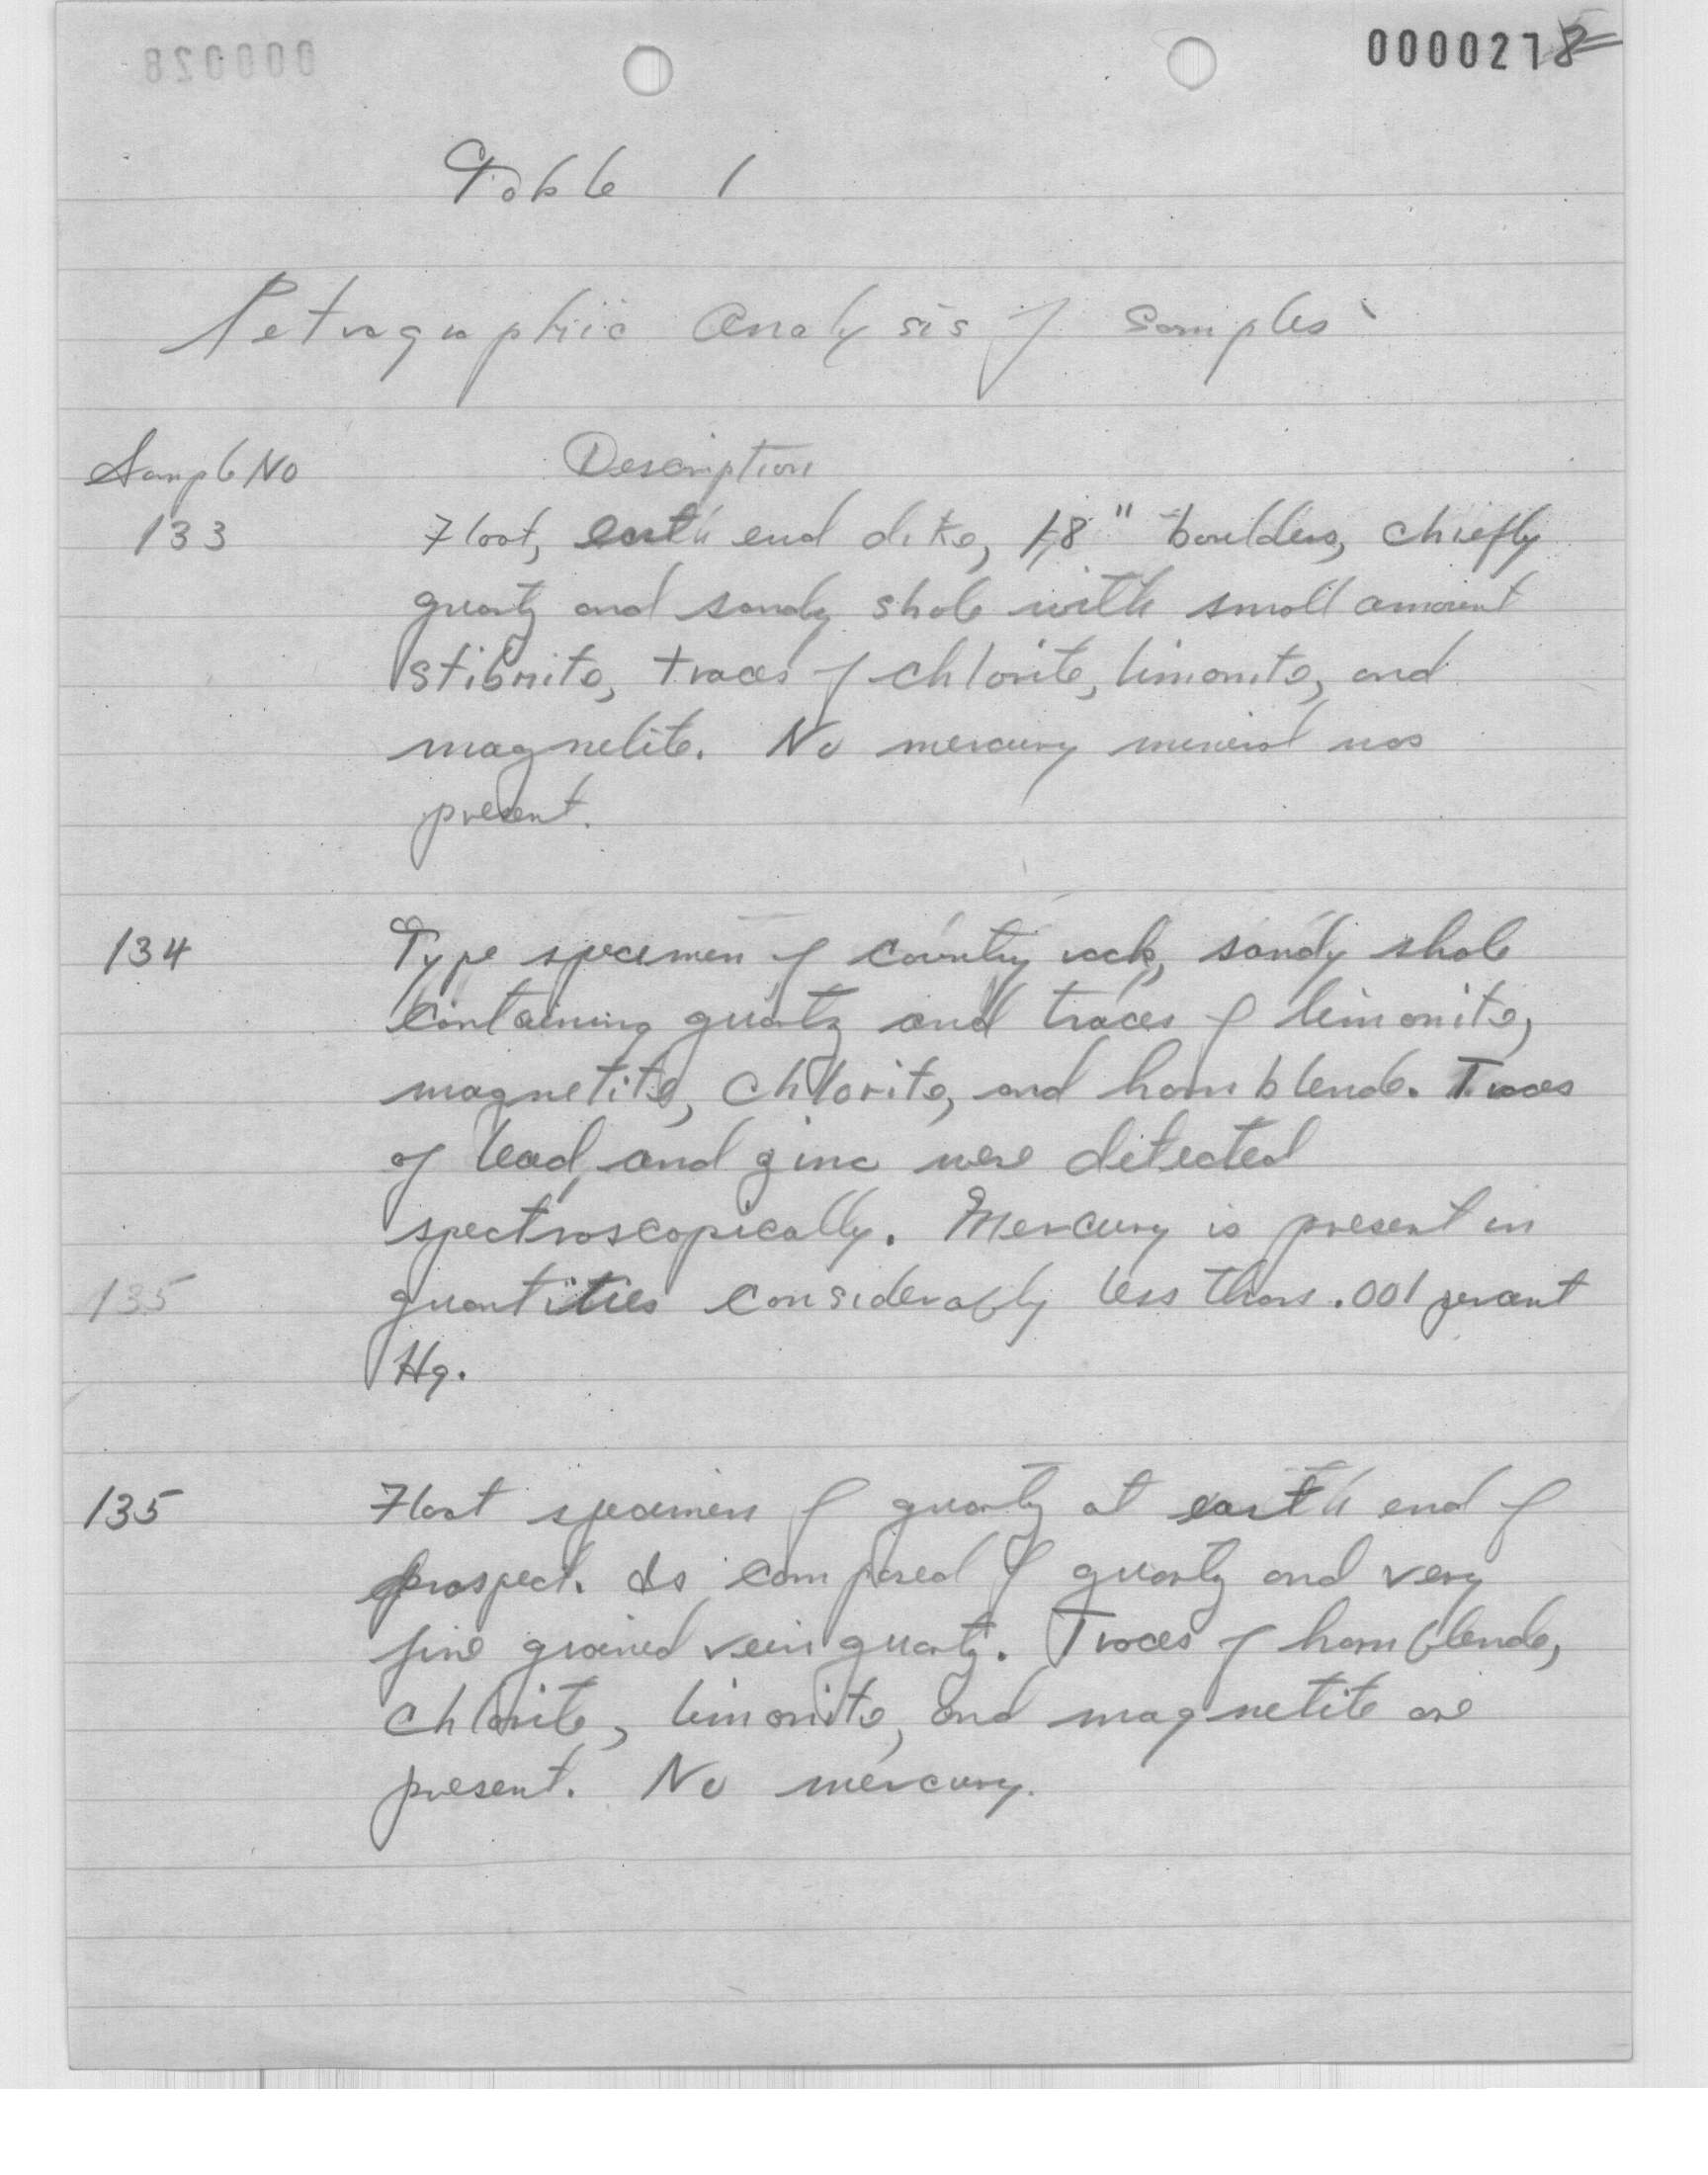 0000278
Table 1
Petrographic Analysis of Samples
Sample No Description
133 Float, east end dike, 18" boulders, chiefly
quartz and sandy shale with small amount
stibnite, traces of chlorite, limonite, and
magnetite. No mercury mineral was
present.
134 Type specimen of country rock, sandy shale
containing quartz and traces of limonite,
magnetite, chlorite, and hornblende. Traces
of lead and zinc were detected
spectroscopically. Mercury is present in
135 quantities considerably less than .001 percent
Hg.
135 Float specimen of quartz at east end of
prospect. Is composed of quartz and very
fine grained vein quartz. Traces of hornblende,
chlorite, limonite, and magnetite are
present. No mercury.